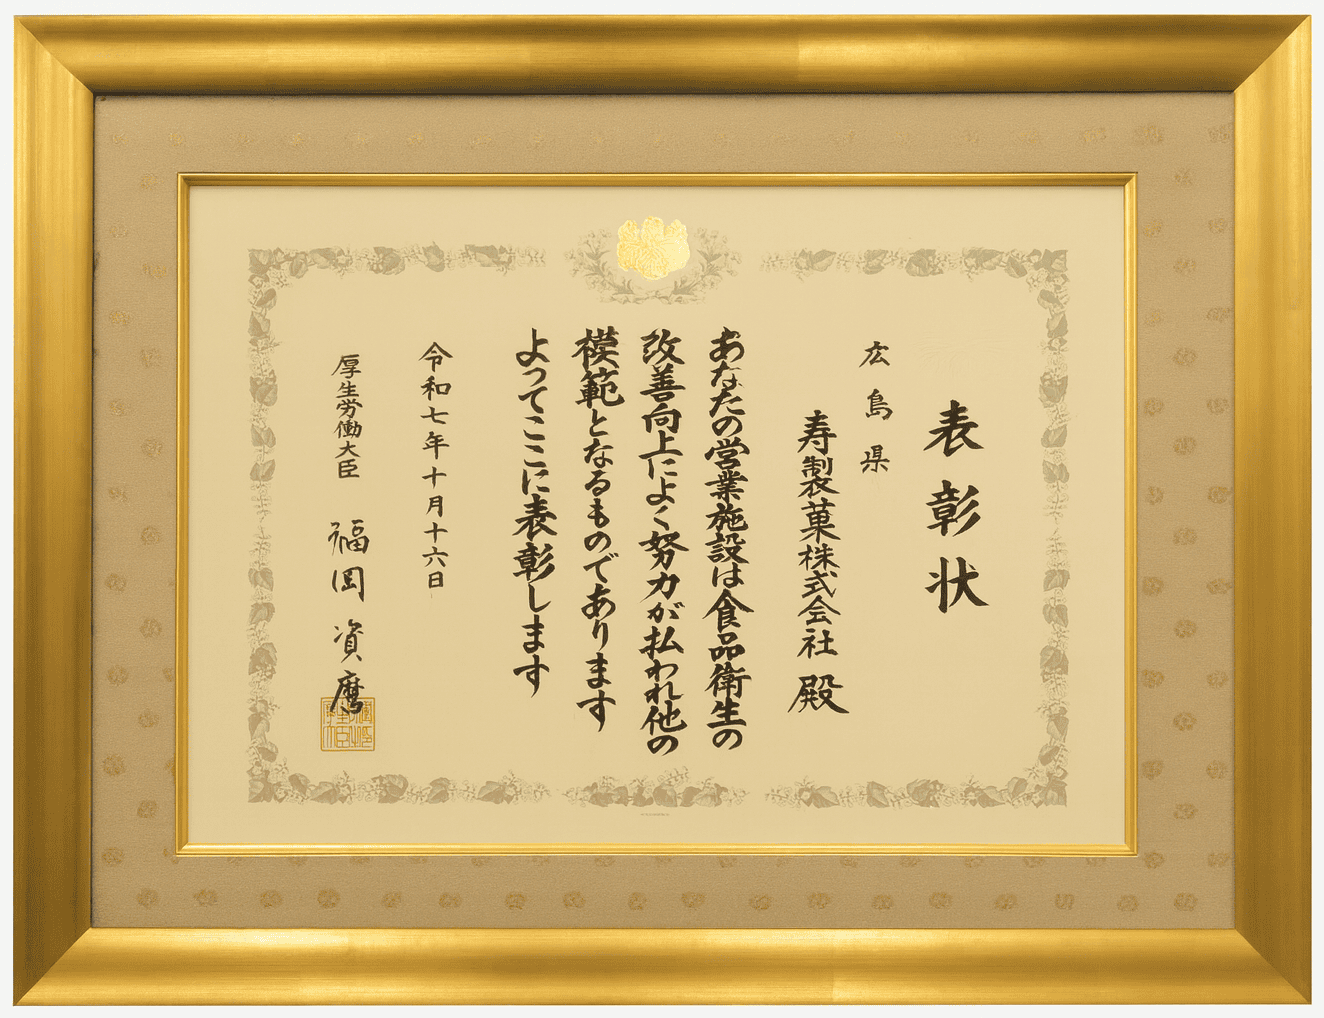 表彰状
広島県
寿製菓株式会社 殿
あなたの営業施設は食品衛生の
改善向上によく努力が払われ他の
模範となるものであります
よってここに表彰します
令和七年十月十六日
厚生労働大臣 福岡資麿